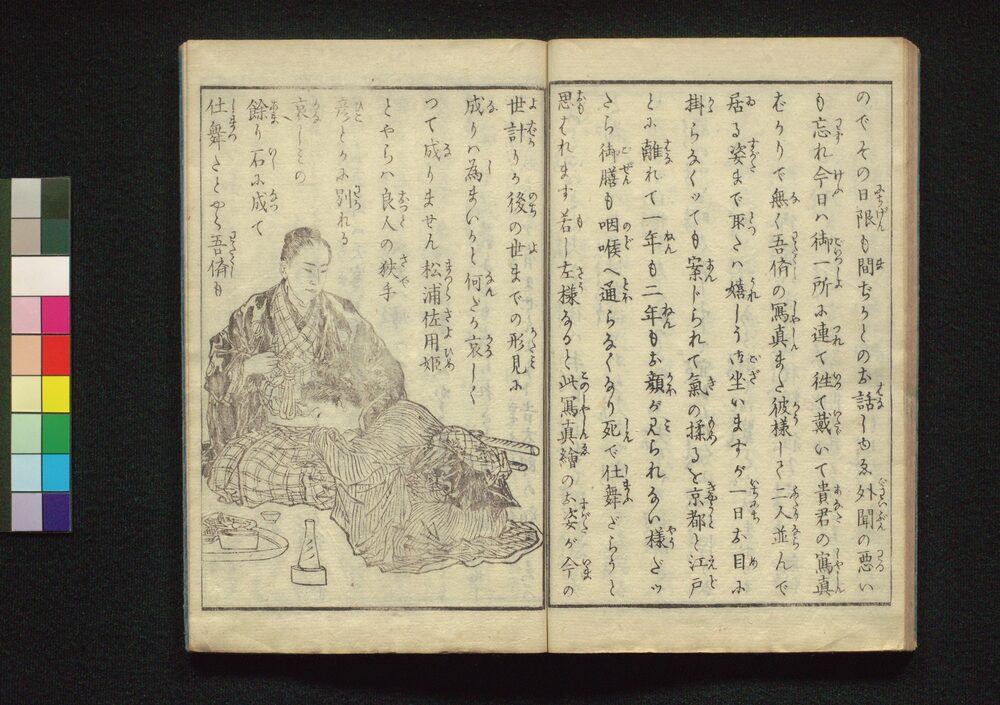 のでその日限も間ぢかとのお話しゆゑ外聞の悪い
も忘れ今日ハ御一所に連て徃て戴いて貴君の寫真
ばかりで無く吾儕の寫真また彼様して二人並んで
居る姿まで取たハ嬉しう御坐いますが一日お目に
掛らなくッても案じられて氣の揉るを京都と江戸
とに離れて一年も二年もお顔が見られない様だッ
たら御膳も咽喉へ通らなくなり死で仕舞だらうと
思はれます若し左様なると此寫真繪のお姿が今の
世計りか後の世までの形見に
成りハ為まいかと何だか哀しく
つて成りません松浦佐用姫
とやらハ良人の狭手
彦とかに別れる
哀しみの
餘り石に成て
仕舞たとやら吾儕も